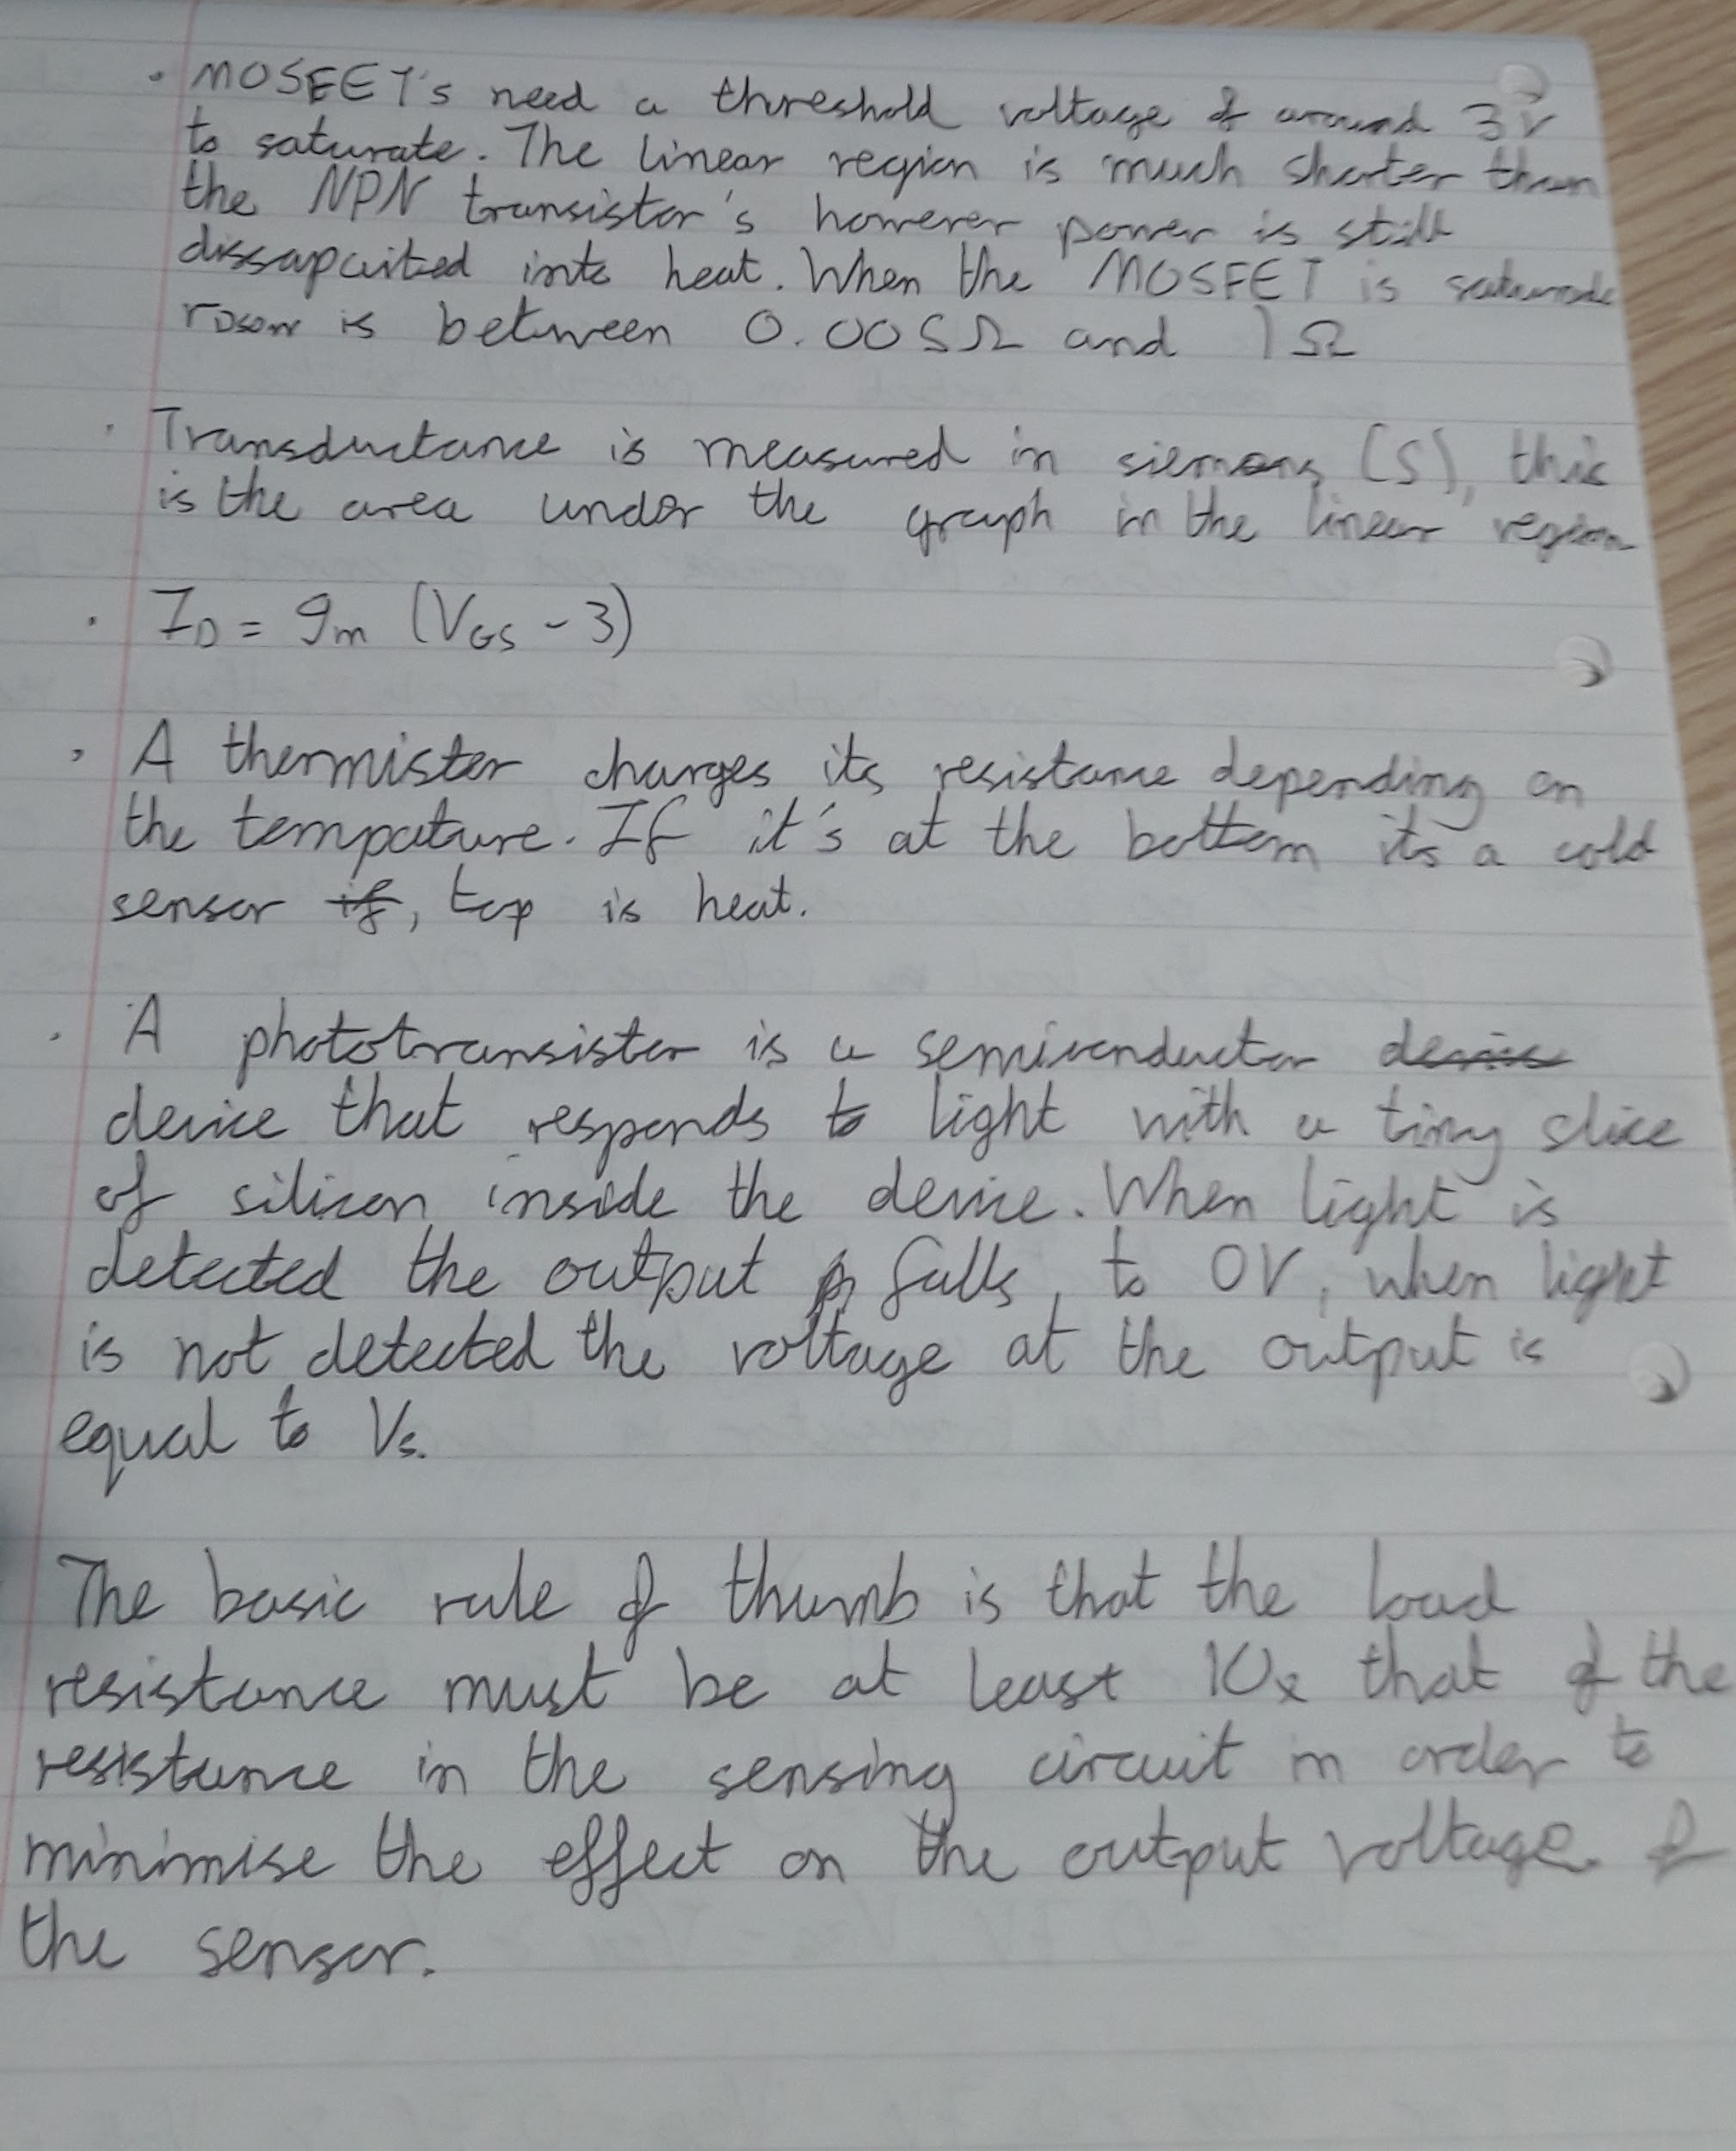 · MOSFET's need a threshold voltage of around 3V
to saturate. The linear region is much shorter than
the NPN transistor's however power is still
dissapaited into heat. When the MOSFET is saturate
rDSon is between 0.005Ω and 1Ω
· Transductance is measured in siemens (S), this
is the area under the graph in the linear region
· ID = gm (VGS - 3)
· A thermister changes its resistance depending on
the tempature. If it's at the bottom its a cold
sensor if, top is heat.
· A phototransistor is a semiconductor device
device that responds to light with a tiny slice
of silicon inside the device. When light is
detected the output falls to 0V, when light
is not detected the voltage at the output is
equal to Vs.
The basic rule of thumb is that the load
resistance must be at least 10x that of the
resistance in the sensing circuit in order to
minimise the effect on the output voltage of
the sensor.